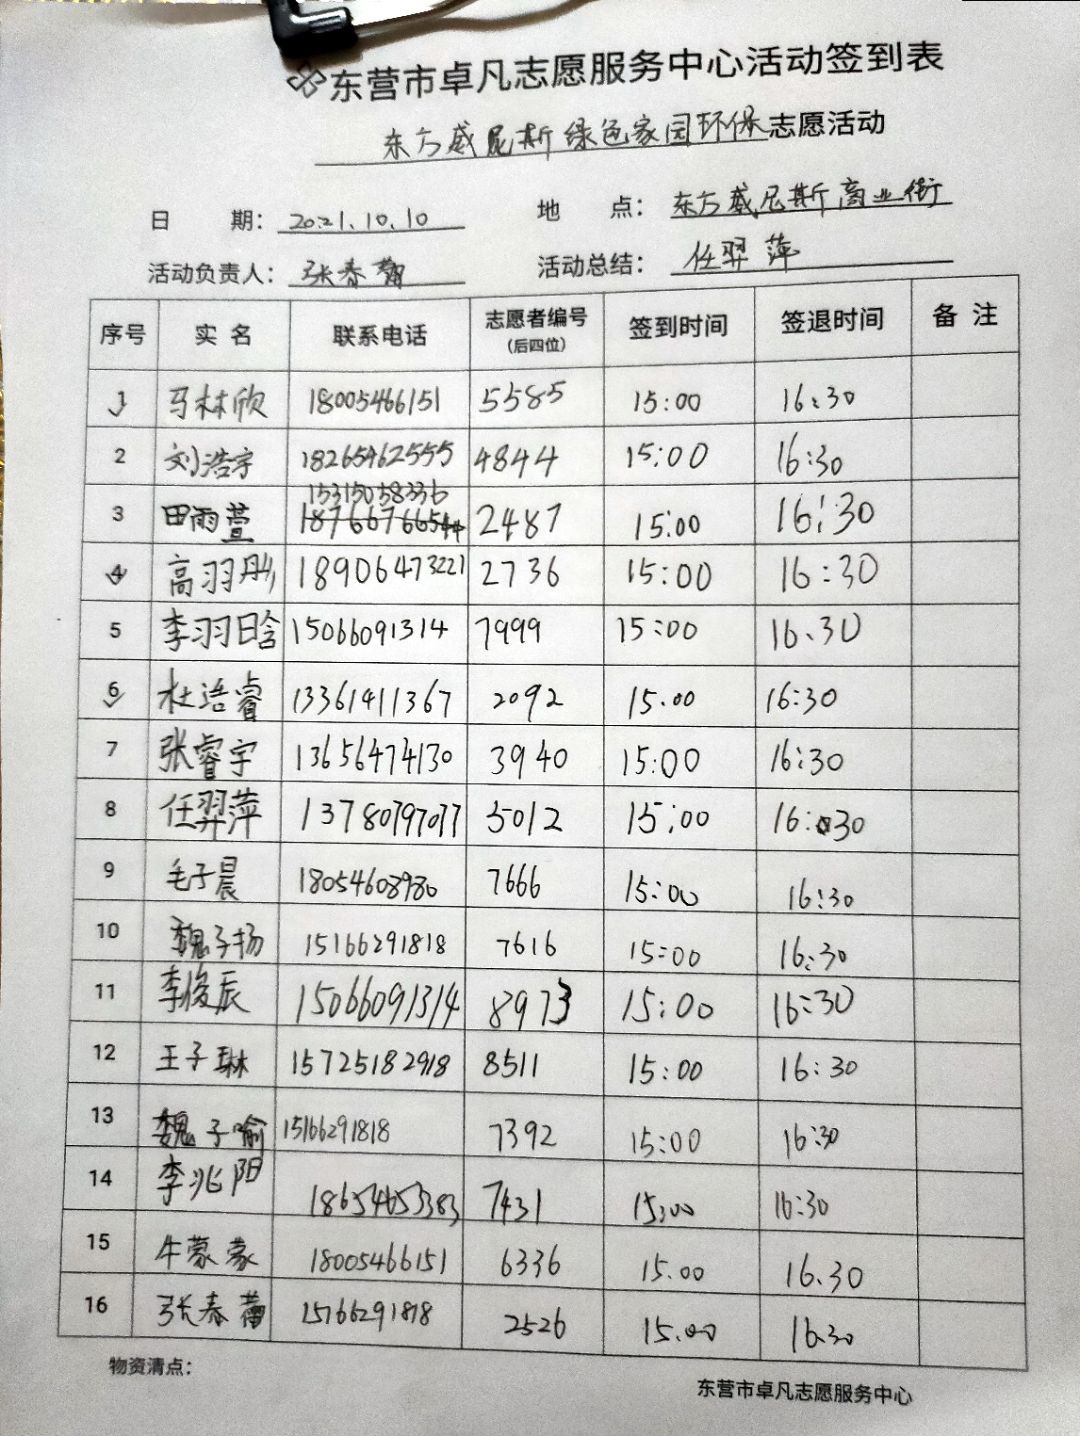 东营市卓凡志愿服务中心活动签到表
东方威尼斯绿色家园环保志愿活动
日 期: 2021.10.10 地 点: 东方威尼斯商业街
活动负责人: 张春蕾 活动总结: 任羿萍
序号 实名 联系电话 志愿者编号(后四位) 签到时间 签退时间 备注
1 马林欣 18005466151 5585 15:00 16:30
2 刘浩宇 18265462555 4844 15:00 16:30
15315058336
3 田雨萱 18766766544 2487 15:00 16:30
4 高羽彤 18906473221 2736 15:00 16:30
5 李羽晗 15066091314 7999 15:00 16.30
6 杜浩睿 13361411367 2092 15.00 16:30
7 张睿宇 13656474130 3940 15:00 16:30
8 任羿萍 13780797077 5012 15:00 16:30
9 毛子晨 18054608980 7666 15:00 16:30
10 魏子扬 15166291818 7616 15:00 16:30
11 李俊辰 15066091314 8973 15:00 16:30
12 王子琳 15725182918 8511 15:00 16:30
13 魏子喻 15166291818 7392 15:00 16:30
14 李兆阳 18654653383 7431 15:00 16:30
15 牛蒙蒙 18005466151 6336 15.00 16.30
16 张春蕾 15166291818 2526 15.00 16.30
物资清点:
东营市卓凡志愿服务中心